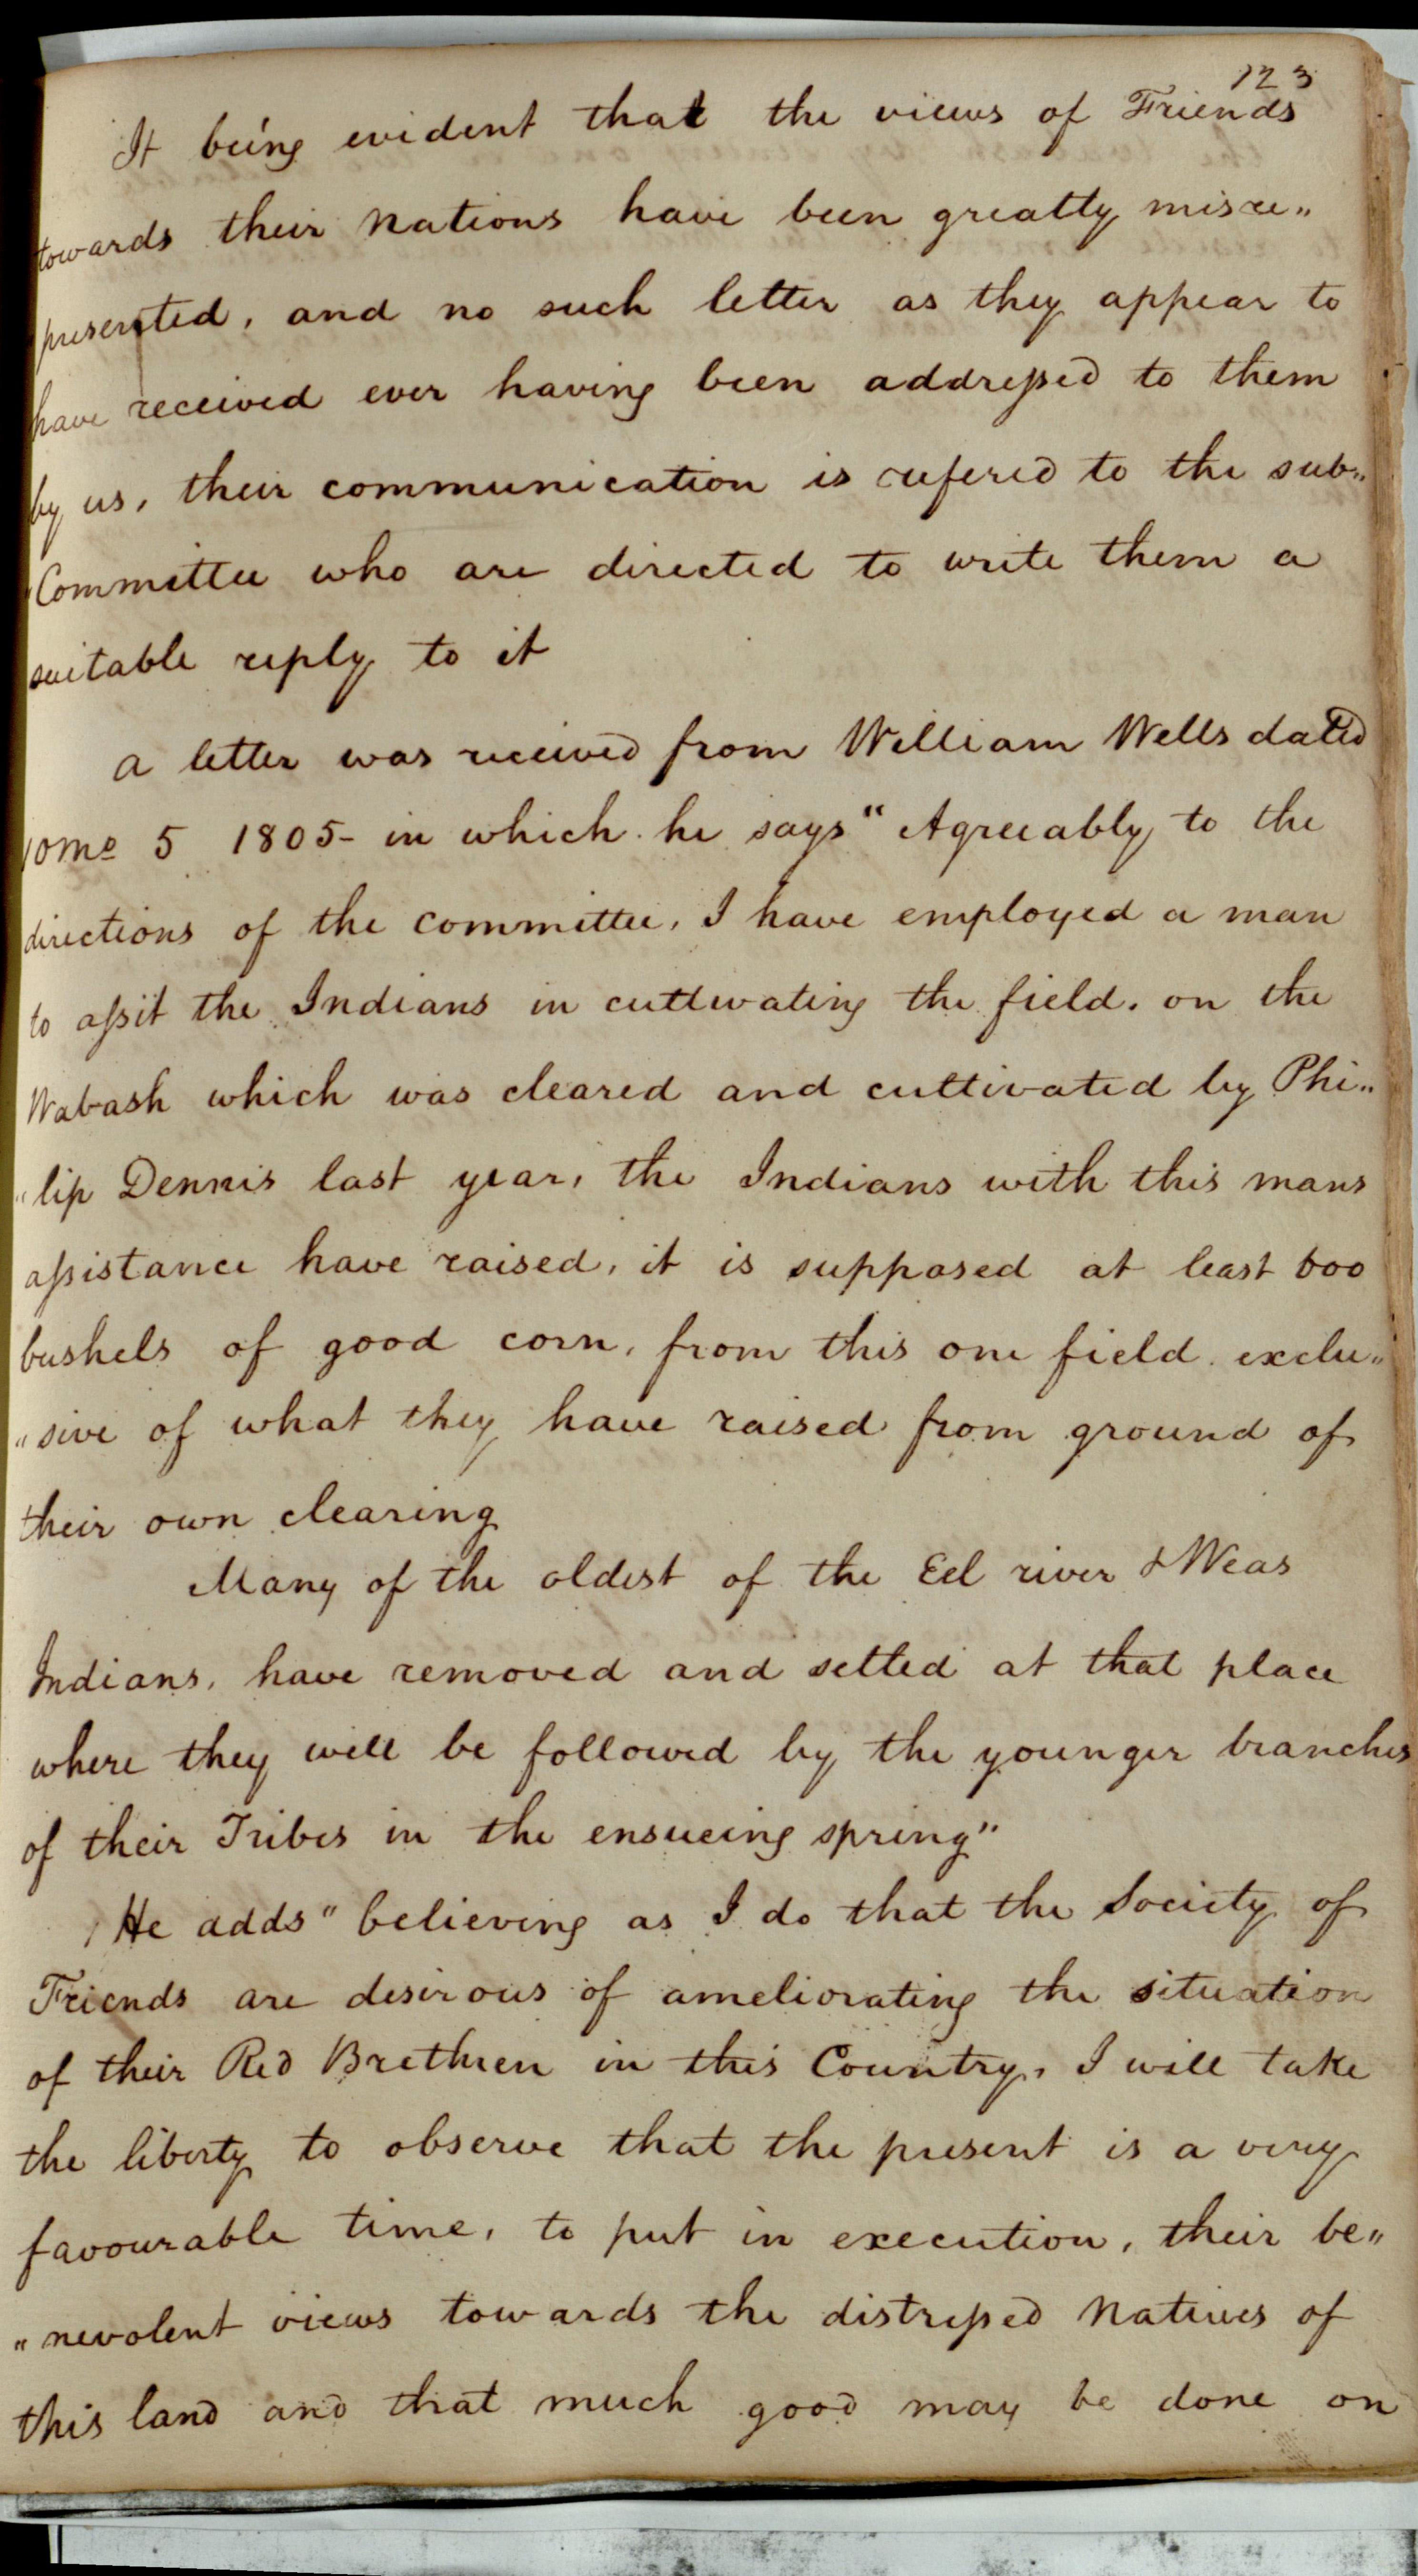 123
It being evident that the views of Friends
towards their Nations have been greatly misre„
presented, and no such letter as they appear to
have received ever having been addressed to them
by us, their communication is refered to the sub„
„Committee who are directed to write them a
suitable reply to it
a letter was received from William Wells dated
10mo 5 1805- in which he says "Agreeably to the
directions of the committee, I have employed a man
to assit the Indians in cultivating the field. on the
Wabash which was cleared and cultivated by Phi„
„lip Dennis last year, the Indians with this mans
assistance have raised, it is supposed at least 600
bushels of good corn, from this one field. exclu„
„sive of what they have raised from ground of
their own clearing
Many of the oldest of the Eel river & Weas
Indians, have removed and setled at that place
where they will be followed by the younger branches
of their Tribes in the ensueing spring"
He adds "believing as I do that the Society of
Friends are desirous of ameliorating the situation
of their Red Brethren in this Country, I will take
the liberty to observe that the present is a very
favourable time, to put in execution, their be„
„nevolent views towards the distressed Natives of
this land and that much good may be done on